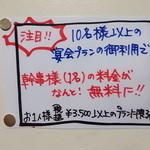 注目!!
10名様以上の
宴会プランの御利用で
幹事様(1名)の料金が
なんと!無料に!!
お1人様 ¥3,500以上のプランに限る